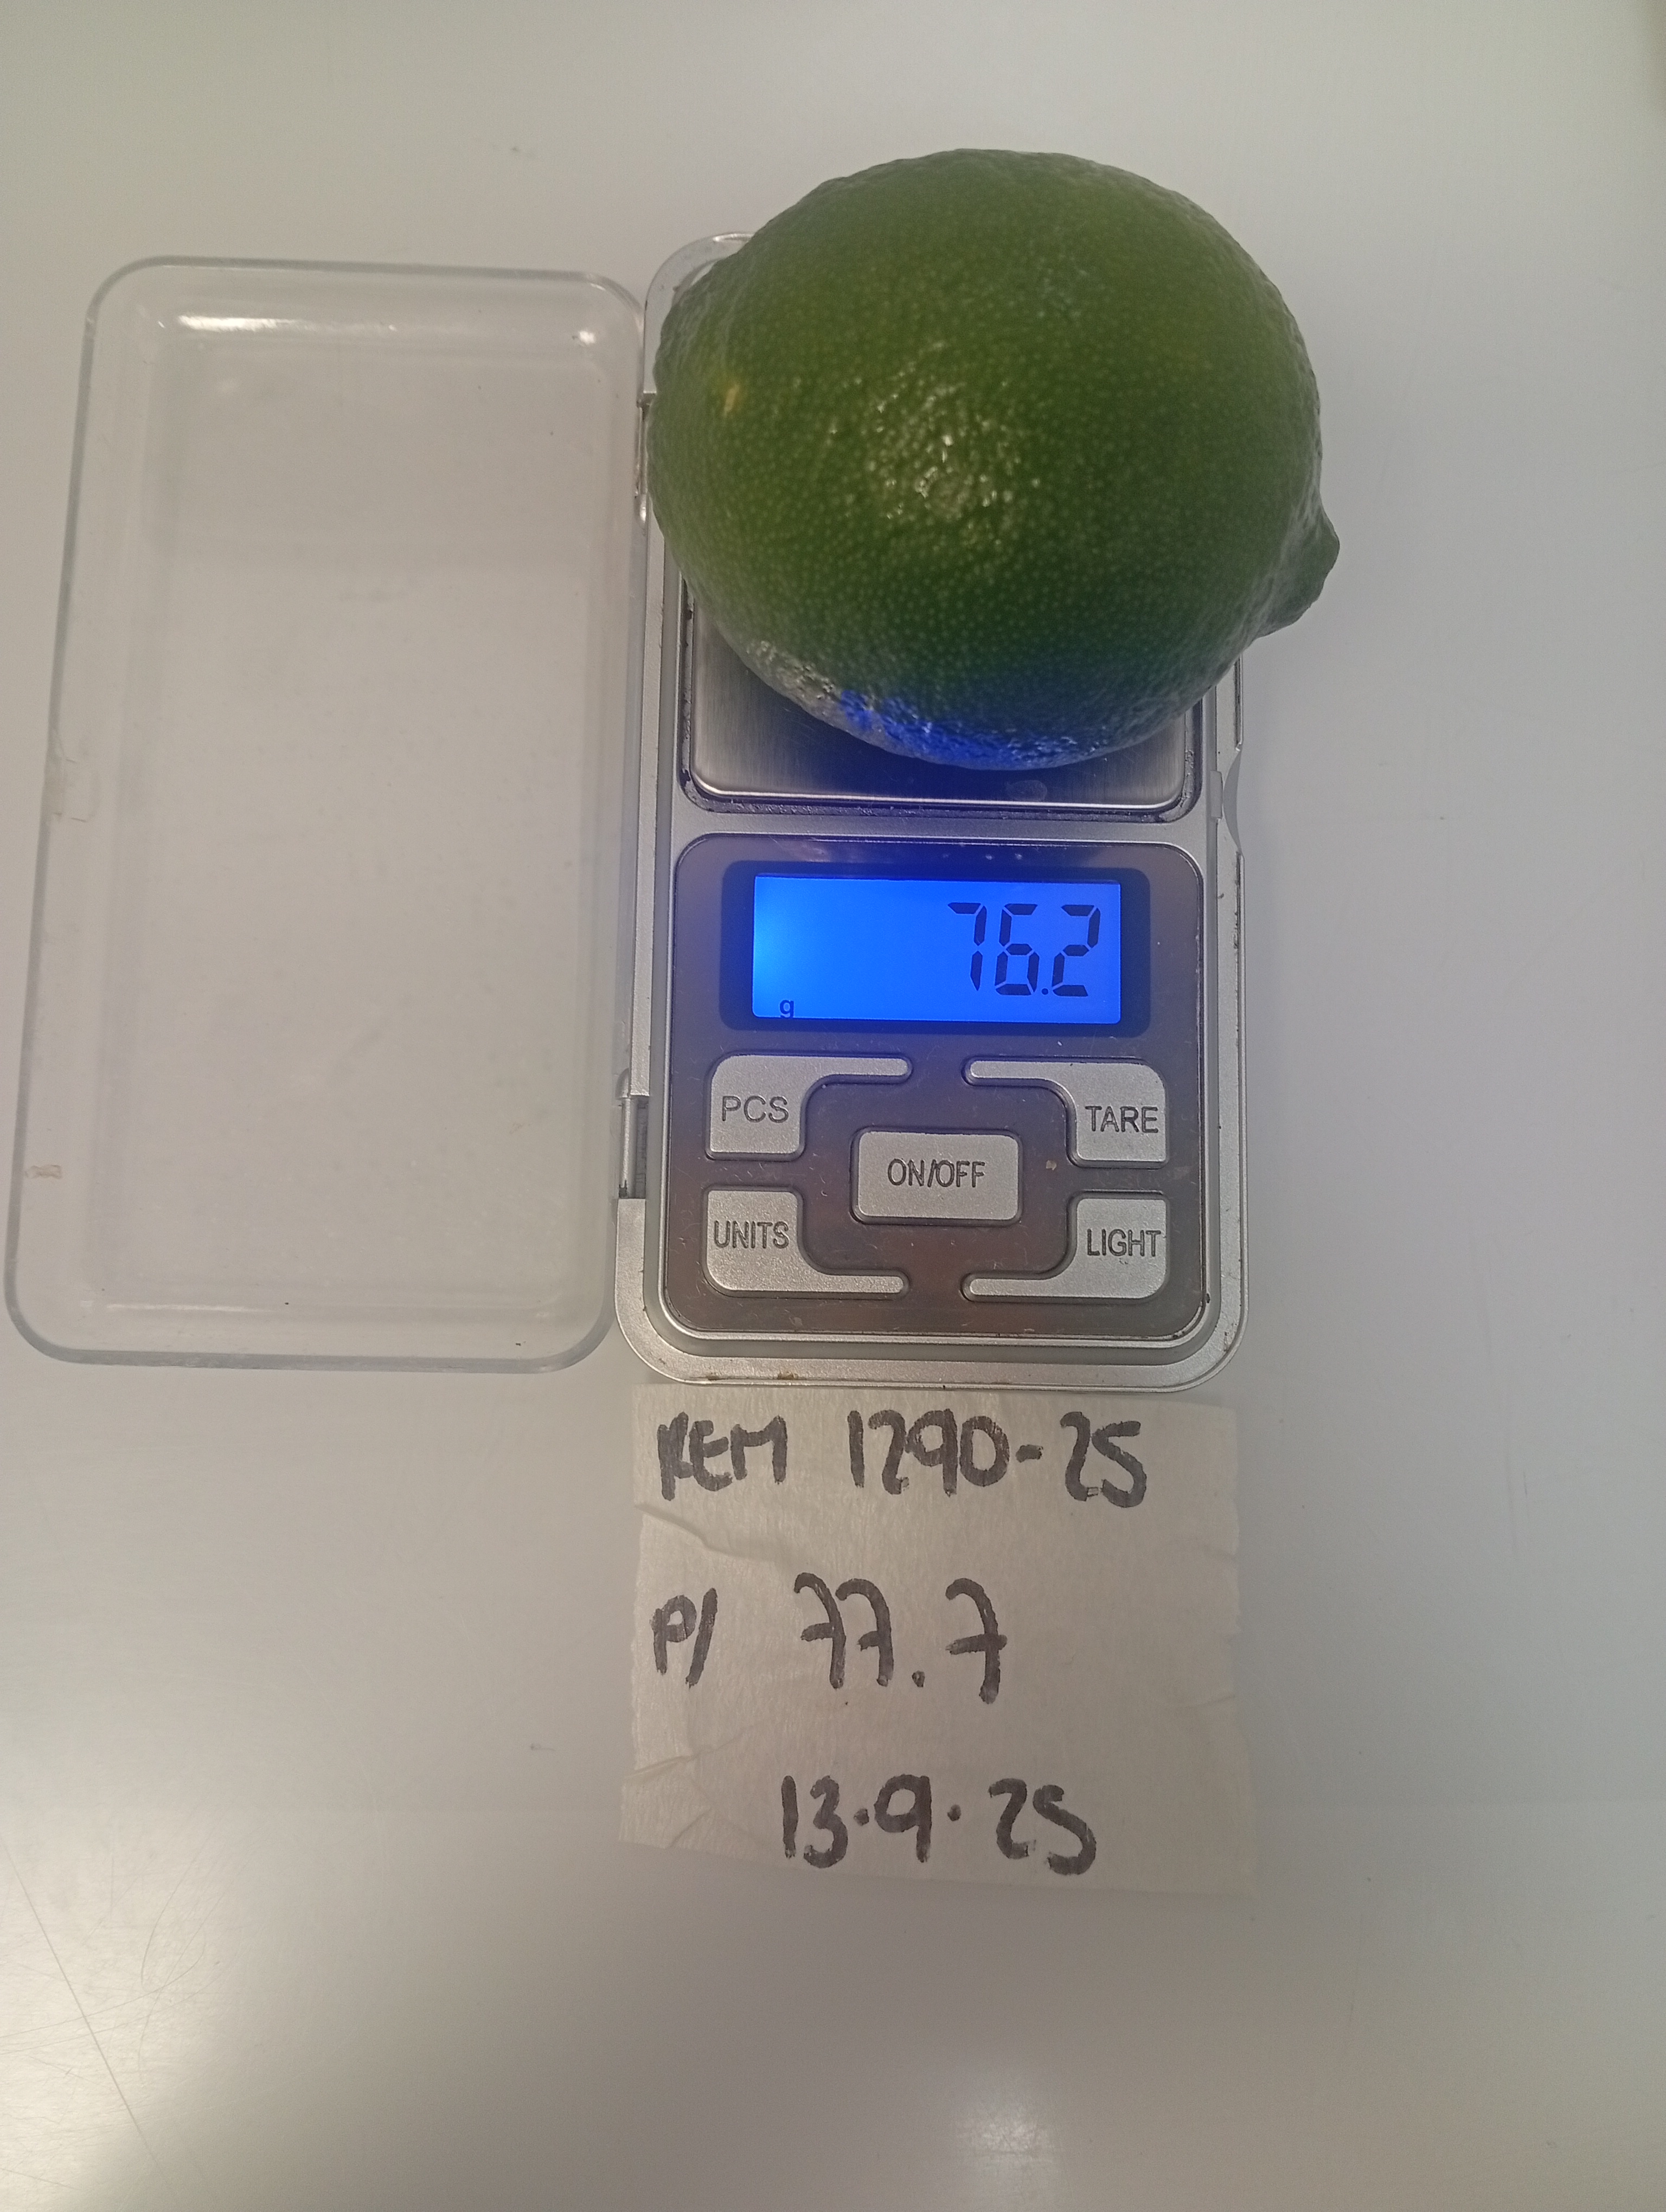 76.2
g
PCS
TARE
ON/OFF
UNITS
LIGHT
REM 1290-25
P/ 77.7
13.9.25